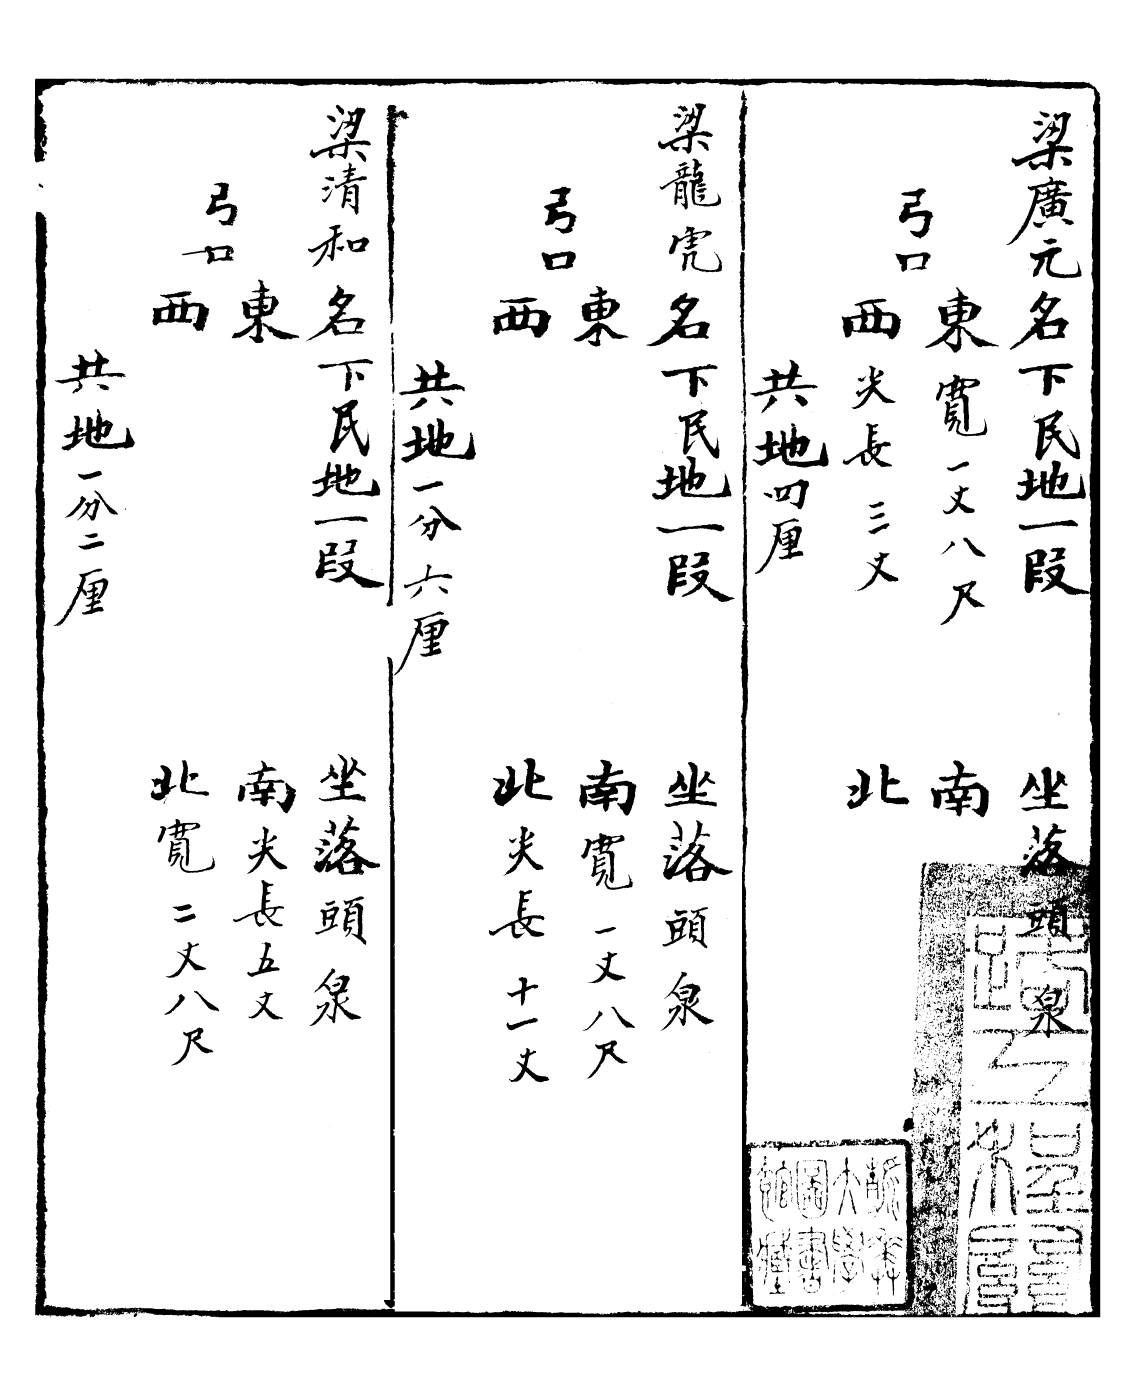 梁廣元名下民地一段　坐落頭泉
弓口
東寬一丈八尺　南
西尖長三丈　北
共地四厘
梁龍虎名下民地一段　坐落頭泉
弓口
東　南寬一丈八尺
西　北尖長十一丈
共地一分六厘
梁清和名下民地一段　坐落頭泉
弓口
東　南尖長五丈
西　北寬二丈八尺
共地一分二厘
大學
圖書
館藏